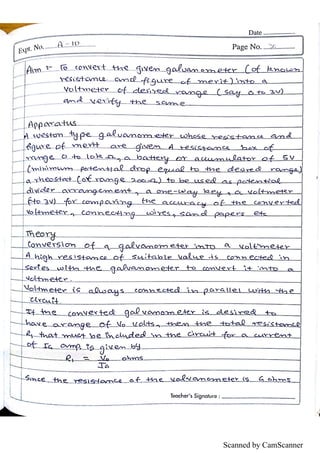 Date
Expt. No. A-10
Page No.
Aim :- To convert the given galvanometer (of known
resistance and figure of merit) into a
voltmeter of desired range (say 0 to 3V)
and verify the same
Apparatus
A weston type galvanometer whose resistance and
figure of merit are given A resistance box of
range 0 to 10k Ω, a battery or accumulator of 5V
(minimum potential drop equal to the desired range)
a rheostat (of range 200Ω) to be used as potential
divider arrangement, a one-way key, a voltmeter
(0 to 3V) for comparing the accuracy of the converted
voltmeter, connecting wires, sand papers etc
Theory
Conversion of a galvanometer into a voltmeter
A high resistance of suitable value is connected in
series with the galvanometer to convert it into a
voltmeter.
Voltmeter is always connected in parallel with the
circuit
If the converted galvanometer is desired to
have a range of Vo volts, then the total resistance
R₁ that must be included in the circuit for a current
of IG amp is given by
R₁ = Vo/IG ohms
Since the resistance of the galvanometer is G ohms
Teacher's Signature :
Scanned by CamScanner